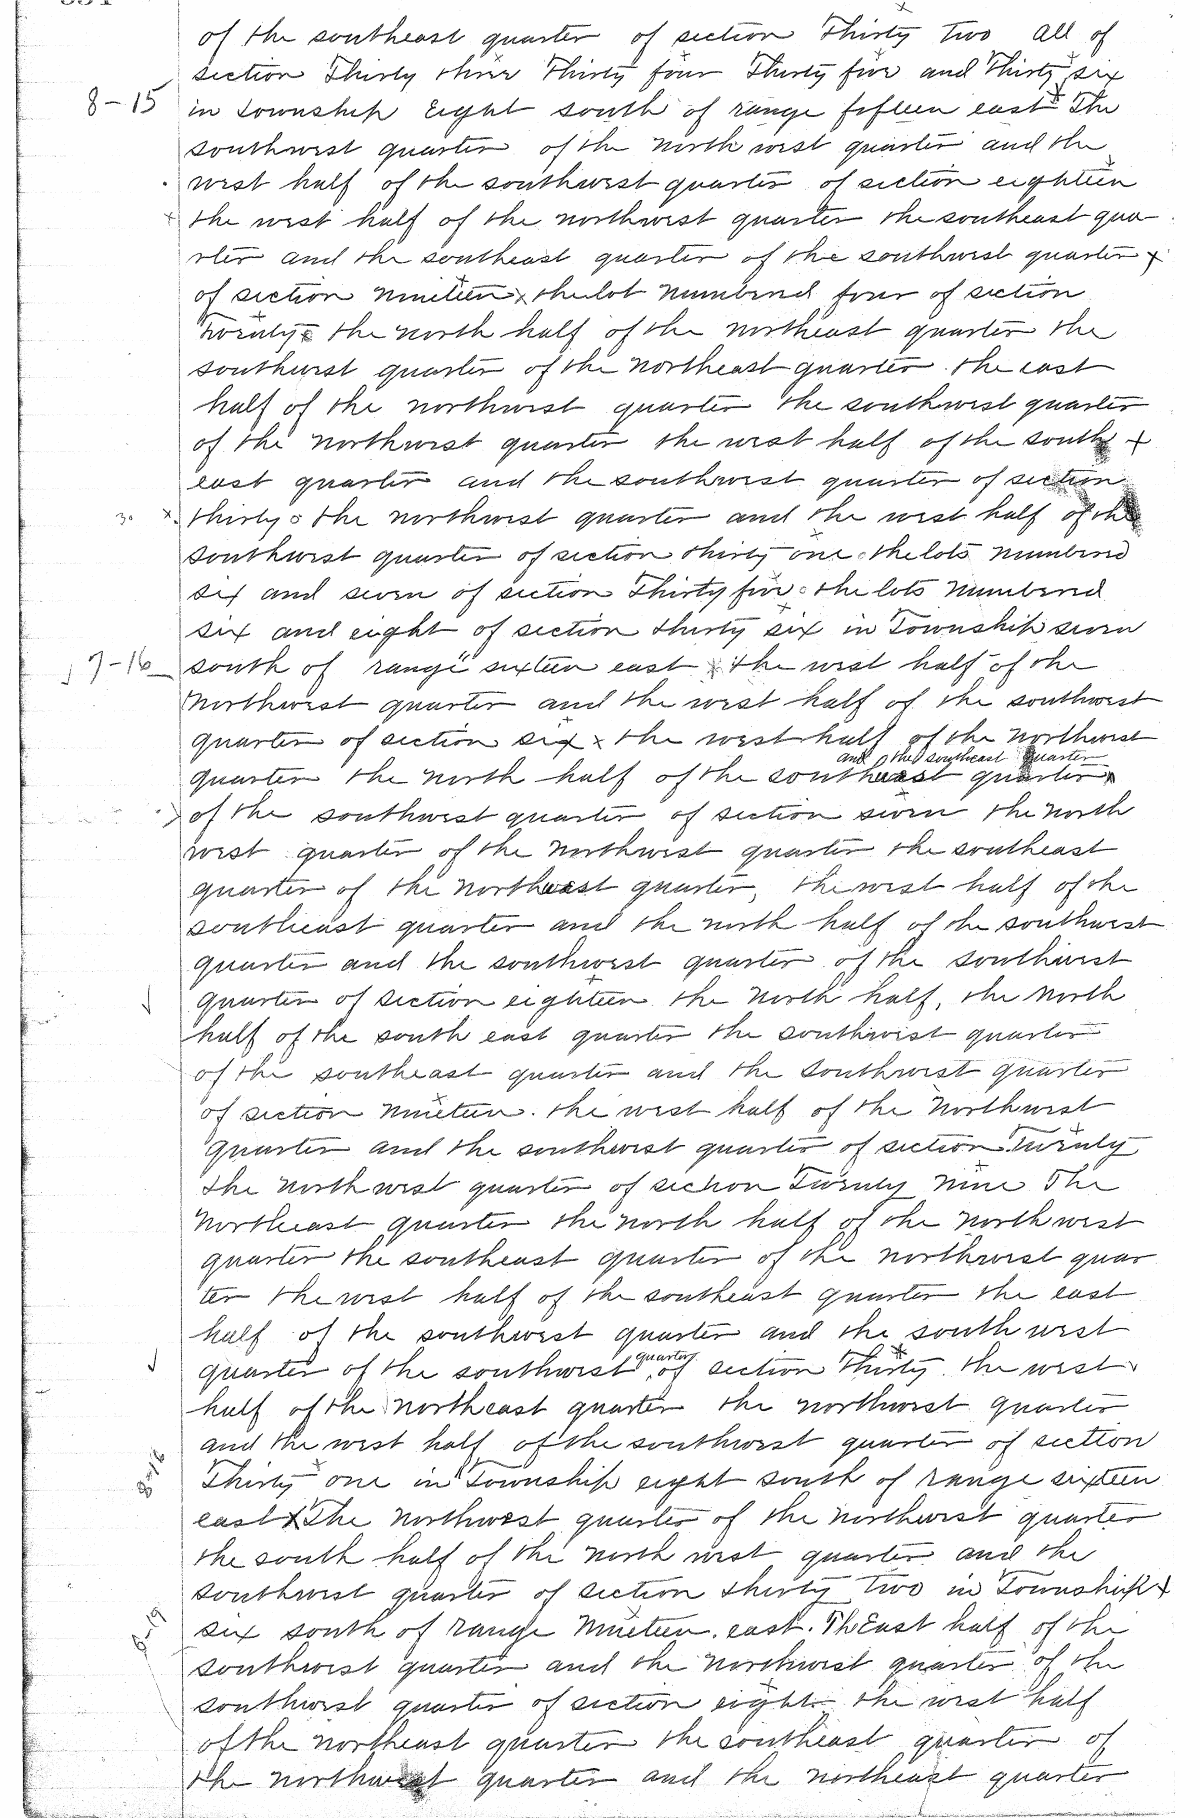 of the southeast quarter of section Thirty two all of
section Thirty three Thirty four Thirty five and Thirty six
8-15 in township Eight south of range fifteen east The
southwest quarter of the north west quarter and the
west half of the southwest quarter of section eighteen
the west half of the northwest quarter the southeast qua
rter and the southeast quarter of the southwest quarter
of section nineteen the lot numbered four of section
Twenty the north half of the northeast quarter the
southwest quarter of the northeast quarter the east
half of the northwest quarter the southwest quarter
of the northwest quarter the west half of the south
east quarter and the southwest quarter of section
30 thirty the northwest quarter and the west half of the
southwest quarter of section thirty one the lots numbered
six and seven of section Thirty five the lots numbered
six and eight of section thirty six in Township seven
7-16 south of range sixteen east the west half of the
Northwest quarter and the west half of the southwest
quarter of section six x the west half of the northwest
and the southeast quarter
quarter the north half of the southeast quarter
of the southwest quarter of section seven the north
west quarter of the northwest quarter the southeast
quarter of the northwest quarter, the west half of the
southeast quarter and the north half of the southwest
quarter and the southwest quarter of the southwest
quarter of section eighteen the north half, the north
half of the south east quarter the southwest quarter
of the southeast quarter and the southwest quarter
of section nineteen. the west half of the Northwest
quarter and the southwest quarter of section Twenty
the north west quarter of section Twenty nine The
Northeast quarter the north half of the north west
quarter the southeast quarter of the northwest quar
ter the west half of the southeast quarter the east
half of the southwest quarter and the south west
quarter of the southwest quarter of section Thirty the west
half of the northeast quarter the northwest quarter
and the west half of the southwest quarter of section
8-16 Thirty one in Township eight south of range sixteen
east x The Northwest quarter of the northwest quarter
the south half of the north west quarter and the
southwest quarter of section thirty two in Township x
6-19 six south of range Nineteen. east. Th East half of the
southwest quarter and the northwest quarter of the
southwest quarter of section eight the west half
of the northeast quarter the southeast quarter of
the northwest quarter and the northeast quarter